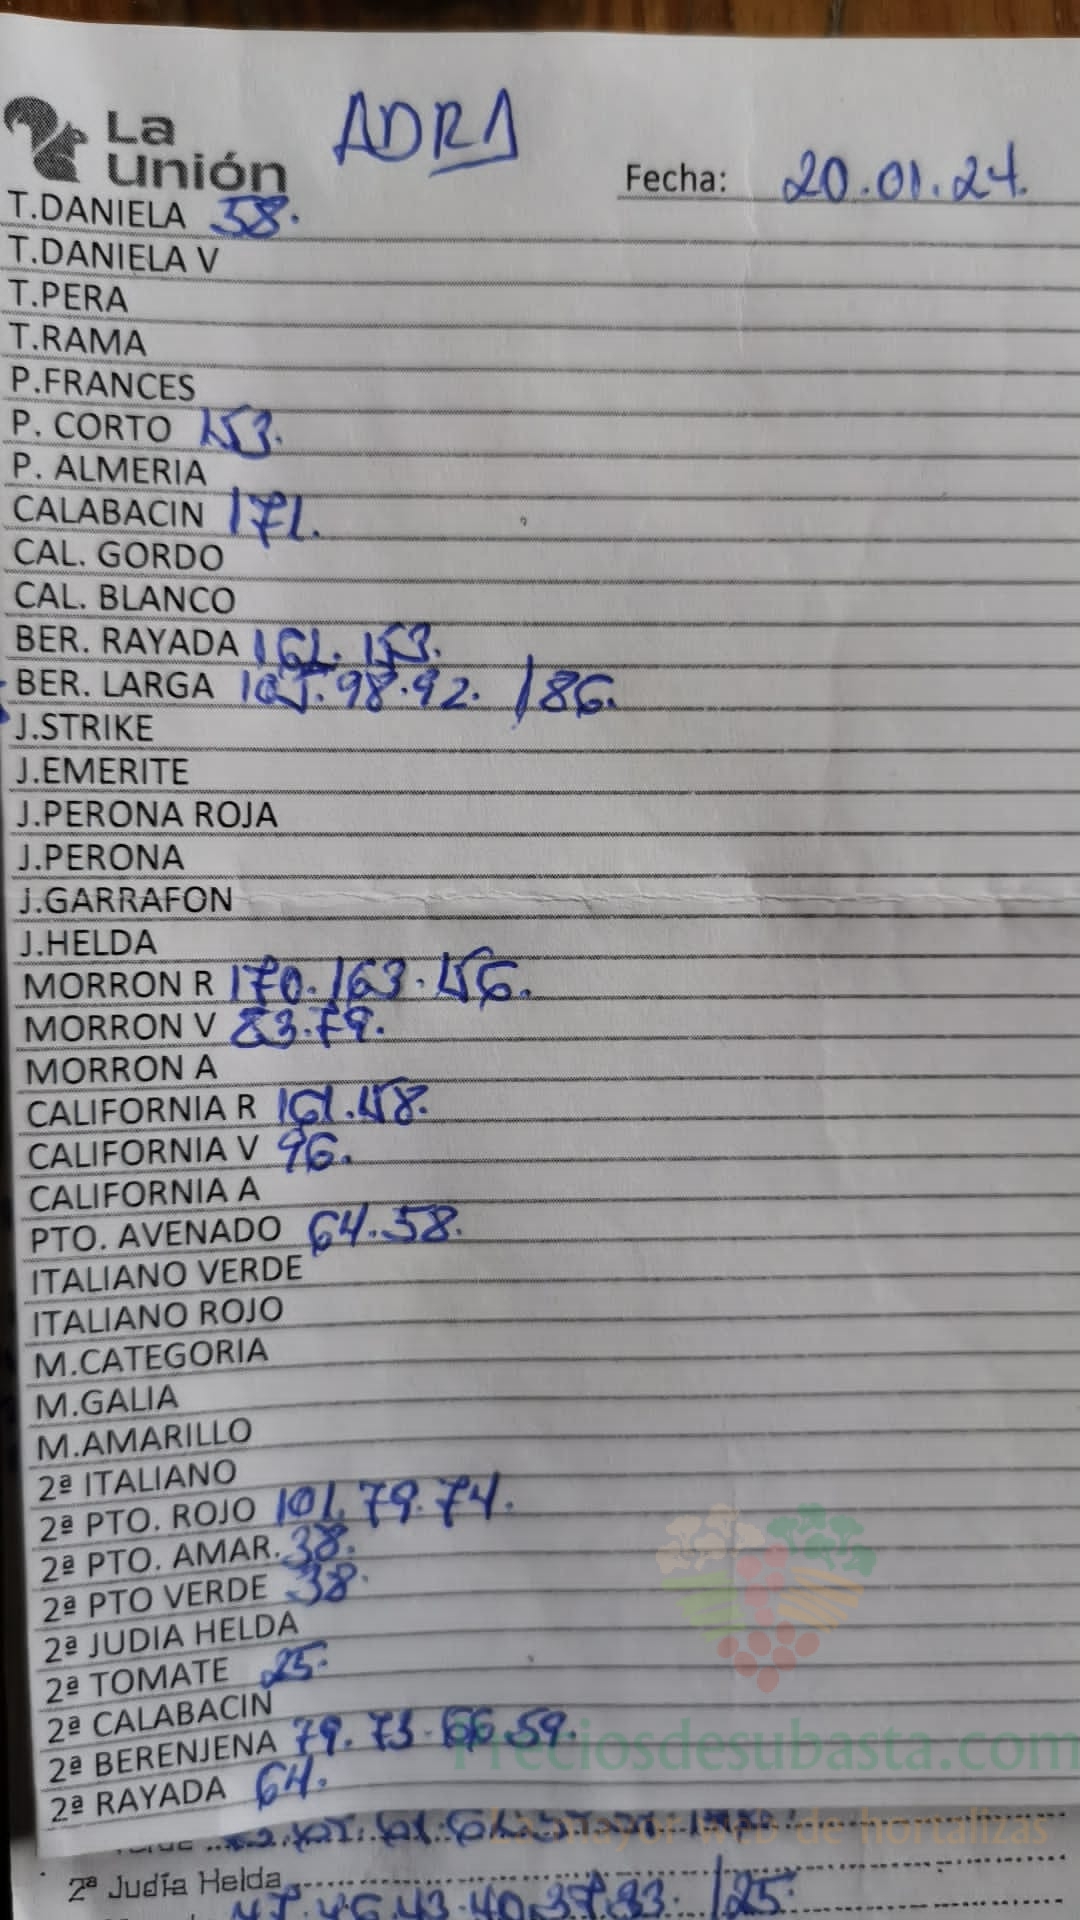 La
Unión
ADRA
Fecha: 20.01.24.
T.DANIELA 58.
T.DANIELA V
T.PERA
T.RAMA
P.FRANCES
P. CORTO 153.
P. ALMERIA
CALABACIN 171.
CAL. GORDO
CAL. BLANCO
BER. RAYADA 161. 153.
BER. LARGA 105.98.92. /86.
J.STRIKE
J.EMERITE
J.PERONA ROJA
J.PERONA
J.GARRAFON
J.HELDA
MORRON R 170.163.156.
MORRON V 83.79.
MORRON A
CALIFORNIA R 161.158.
CALIFORNIA V 96.
CALIFORNIA A
PTO. AVENADO 64.58.
ITALIANO VERDE
ITALIANO ROJO
M.CATEGORIA
M.GALIA
M.AMARILLO
2ª ITALIANO
2ª PTO. ROJO 101.79.74.
2ª PTO. AMAR. 38.
2ª PTO VERDE 38.
2ª JUDIA HELDA
2ª TOMATE 25.
2ª CALABACIN
2ª BERENJENA 79.73.66.59.
2ª RAYADA 64.
Preciosdesubasta.com
La mayor web de hortalizas
2ª Judía Helda
47.46.43.40.37.33. /25.